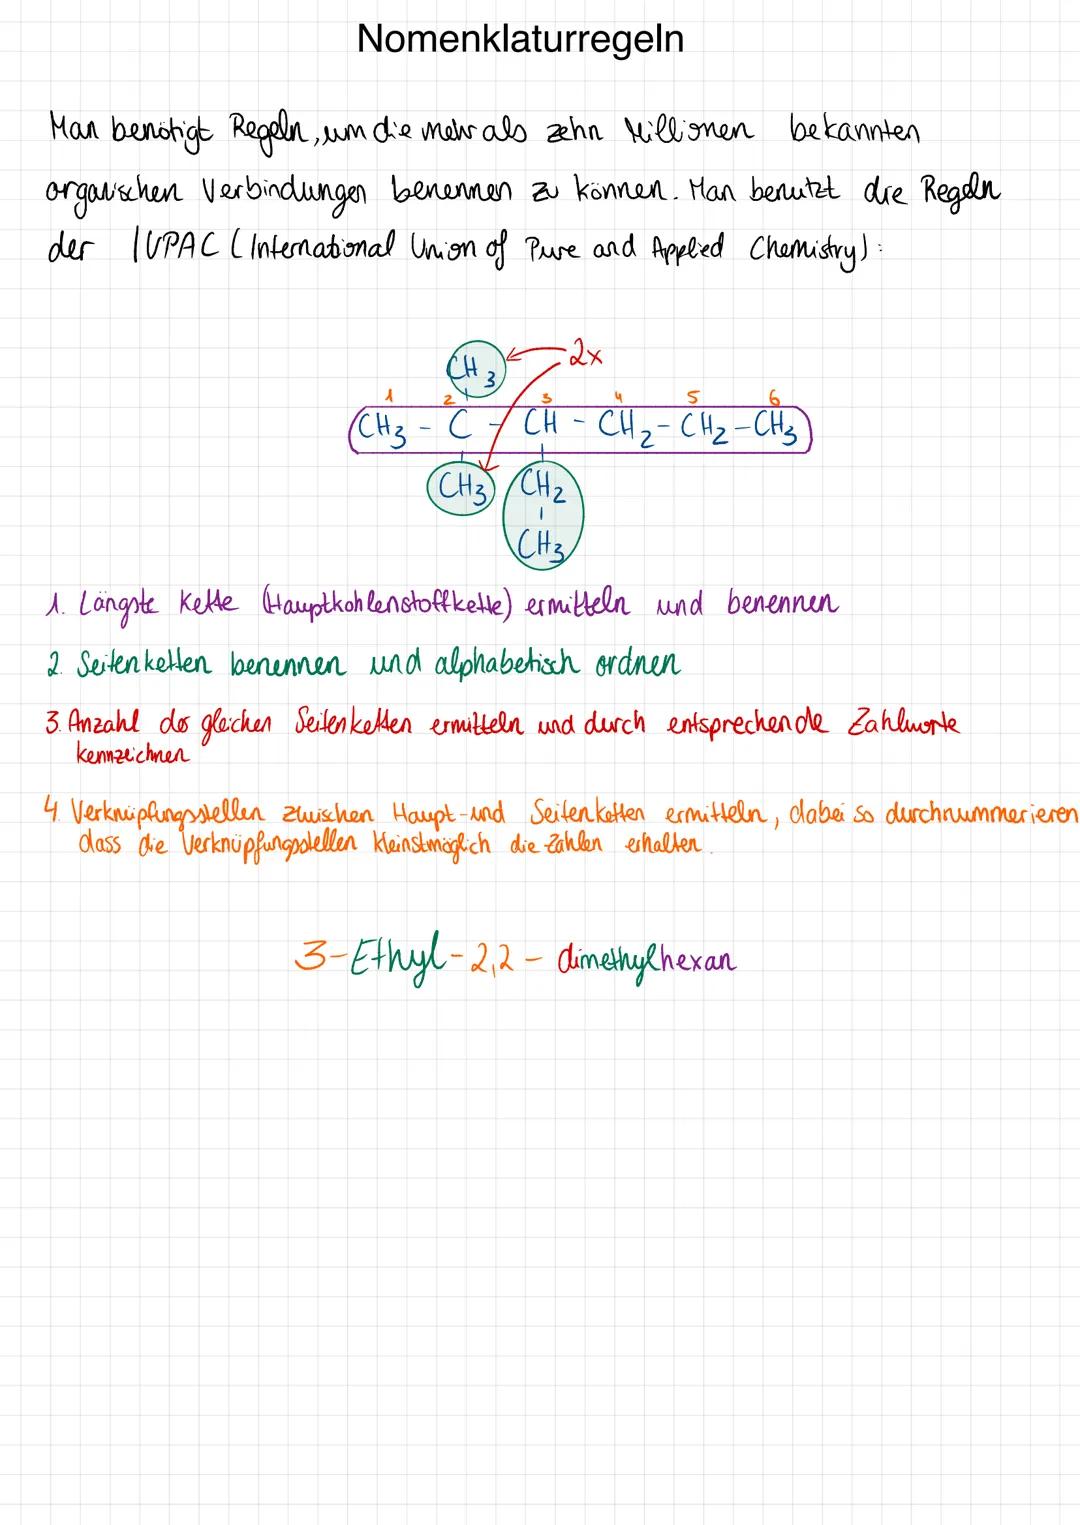 Nomenklaturregeln
Man benötigt Regeln, um die mehr als zehn Millionen bekannten
organischen Verbindungen benennen zu können. Man benutzt die Regeln
der IUPAC (International Union of Pure and Applied Chemistry):
CH3 2x
1 2 3 4 5 6
CH3 - C - CH - CH2 - CH2 - CH3
CH3 CH2
CH3
1. Längste Kette (Hauptkohlenstoffkette) ermitteln und benennen
2. Seitenketten benennen und alphabetisch ordnen
3. Anzahl der gleichen Seitenketten ermitteln und durch entsprechende Zahlworte
kennzeichnen
4. Verknüpfungsstellen zwischen Haupt- und Seitenketten ermitteln, dabei so durchnummerieren
dass die Verknüpfungsstellen kleinstmöglich die Zahlen erhalten.
3-Ethyl-2,2-dimethylhexan